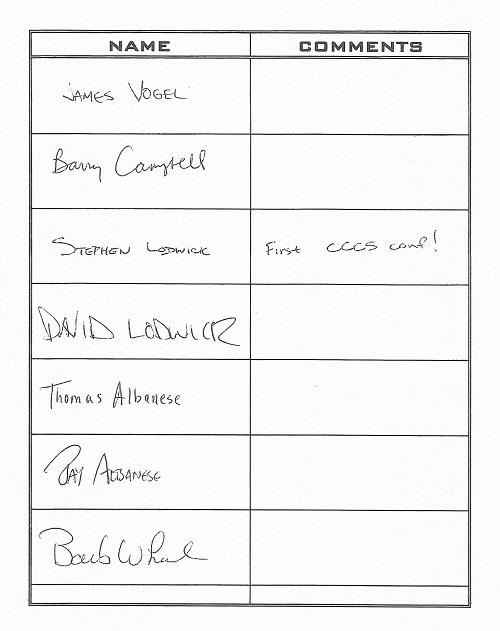 NAME COMMENTS
JAMES VOGEL
Barry Campbell
STEPHEN LODWICK First CCCS conf!
DAVID LODWICK
Thomas Albanese
JAY ALBANESE
Barb